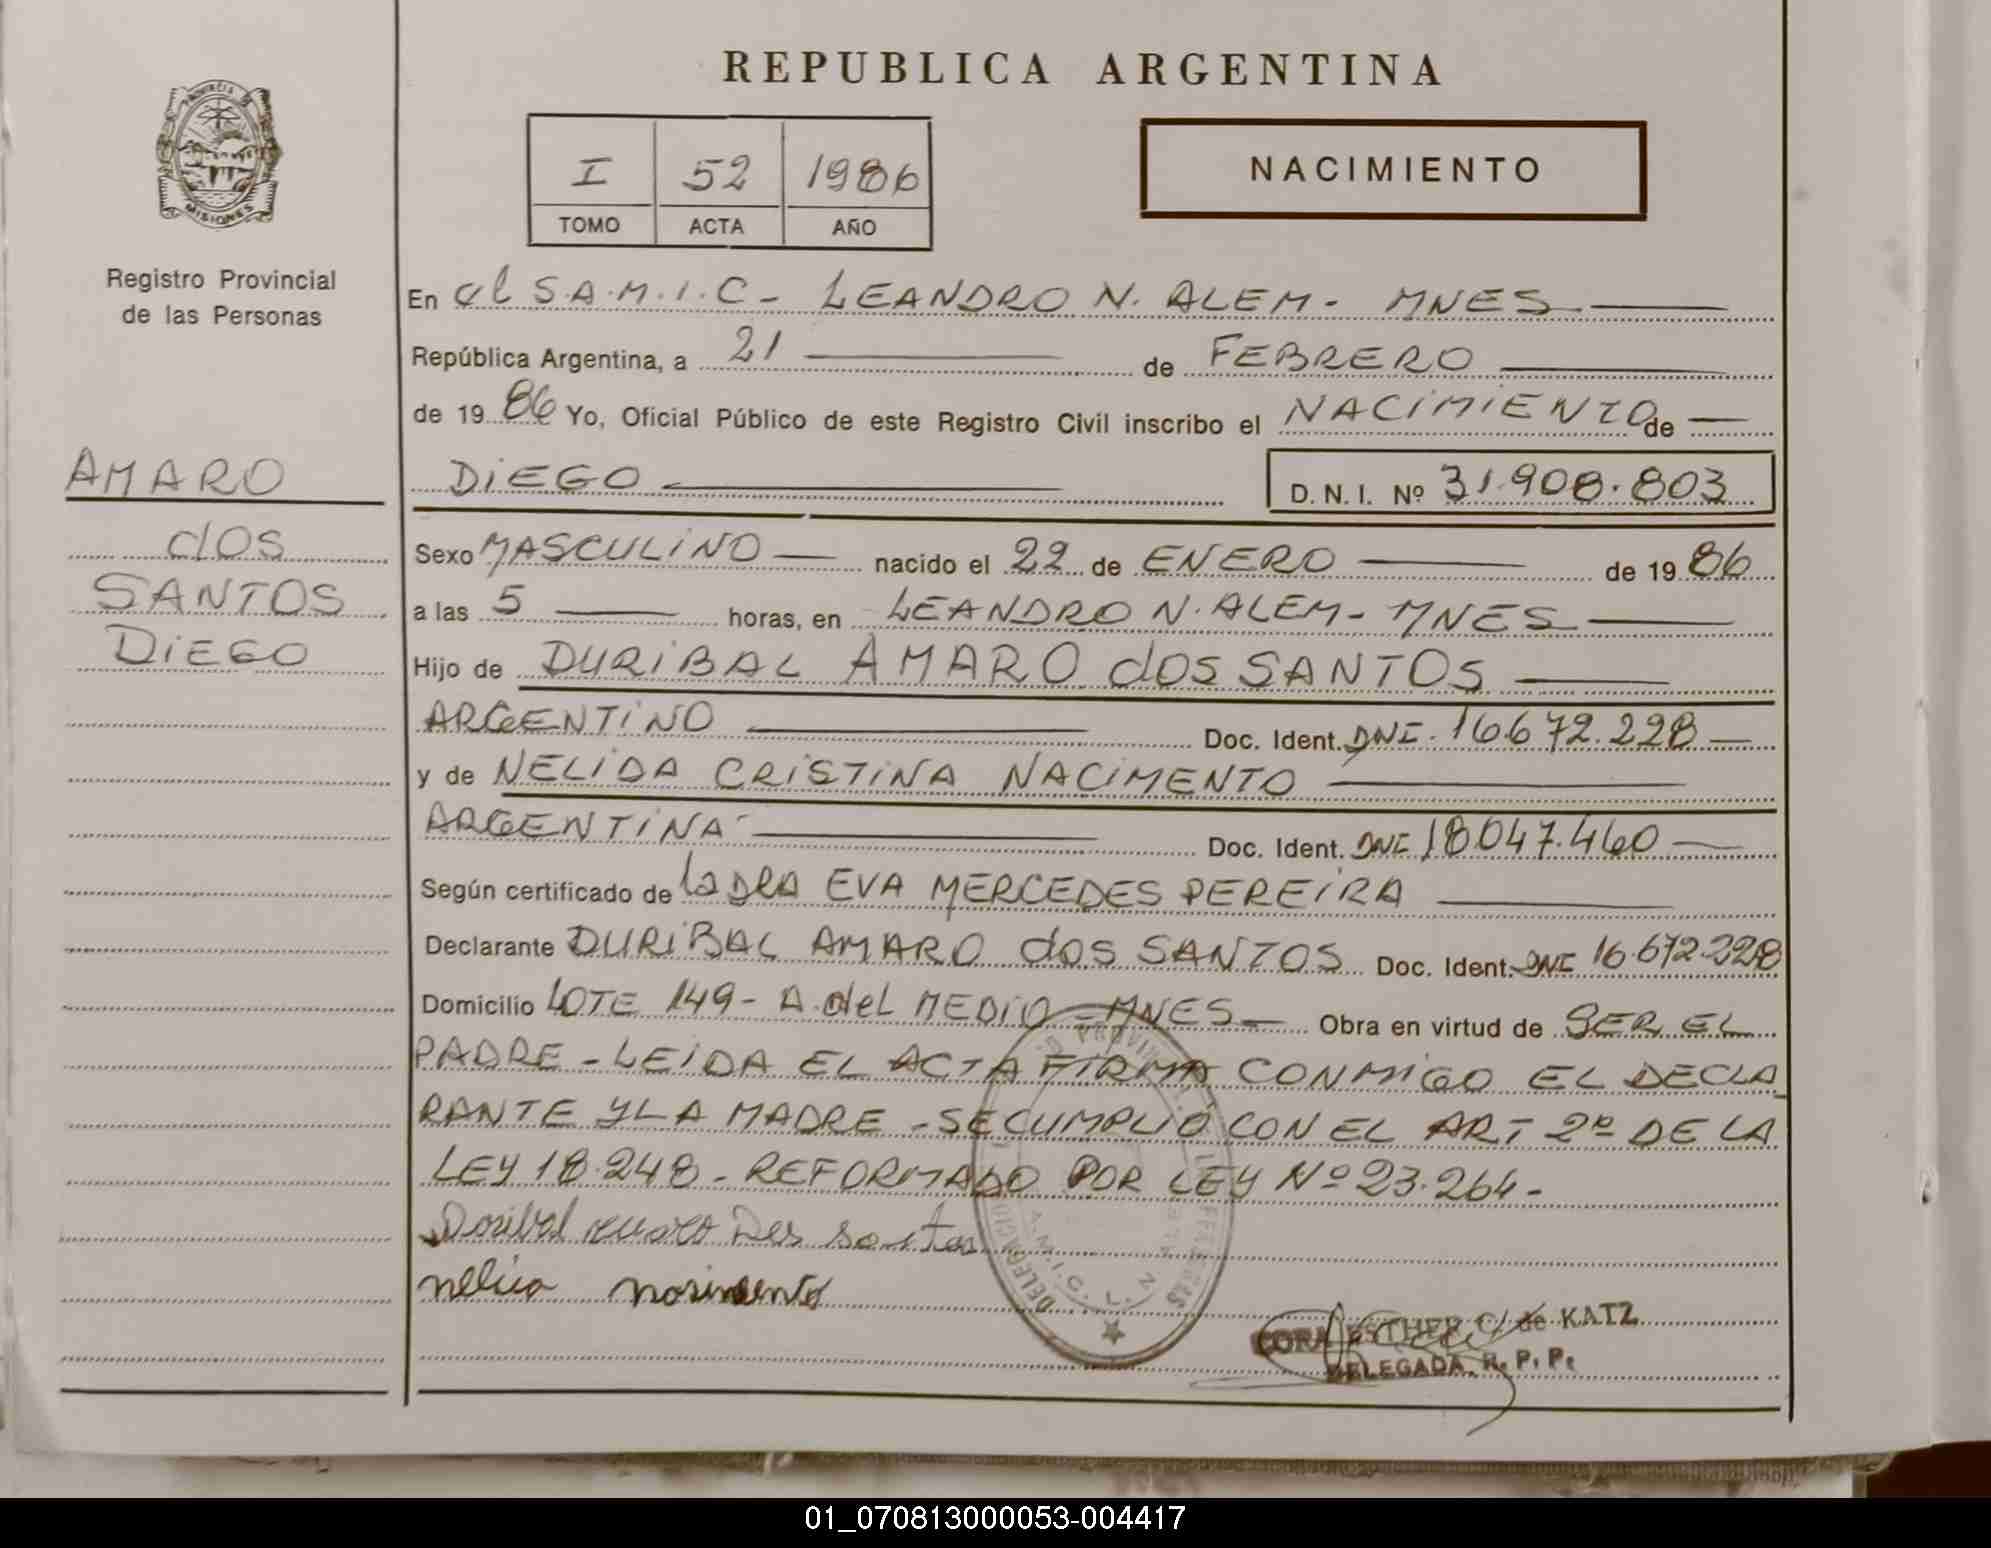 REPUBLICA ARGENTINA
I 52 1986
TOMO ACTA AÑO
NACIMIENTO
PROVINCIA DE
MISIONES
Registro Provincial
de las Personas
AMARO
dos
SANTOS
DIEGO
En el S.A.M.I.C - LEANDRO N. ALEM - MNES
República Argentina, a 21 de FEBRERO
de 1986 Yo, Oficial Público de este Registro Civil inscribo el NACIMIENTO de
DIEGO D.N.I. Nº 31.908.803
Sexo MASCULINO nacido el 22 de ENERO de 1986
a las 5 horas, en LEANDRO N. ALEM - MNES
Hijo de DURIBAL AMARO dos SANTOS
ARGENTINO Doc. Ident. DNI. 16.672.228
y de NELIDA CRISTINA NACIMENTO
ARGENTINA Doc. Ident. DNI 18.047.460
Según certificado de la DRA EVA MERCEDES PEREIRA
Declarante DURIBAL AMARO dos SANTOS Doc. Ident. DNI 16.672.228
Domicilio LOTE 149 - A. del MEDIO - MNES - Obra en virtud de SER EL
PADRE - LEIDA EL ACTA FIRMA CONMIGO EL DECLA
RANTE Y LA MADRE - SE CUMPLIÓ CON EL ART 2º DE LA
LEY 18.248 - REFORMADO POR LEY Nº 23.264 -
Doribal Dos santos
CORA ESTHER C. de KATZ
DELEGADA R. P. P.
01_070813000053-004417